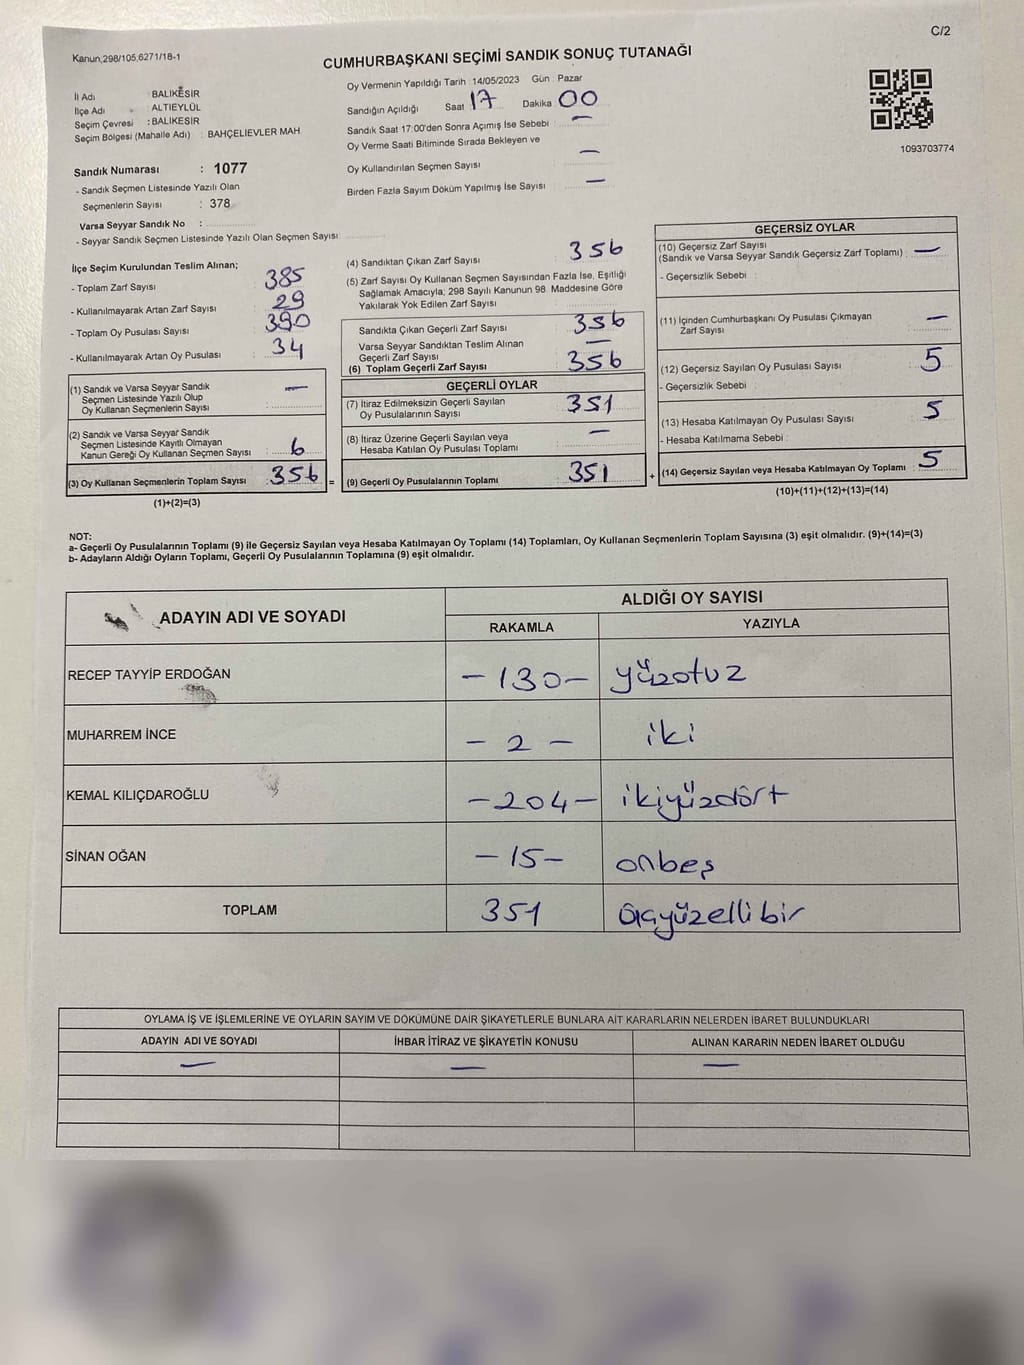 C/2
Kanun,298/105,6271/18-1
CUMHURBAŞKANI SEÇİMİ SANDIK SONUÇ TUTANAĞI
İl Adı : BALIKESİR
İlçe Adı : ALTIEYLÜL
Seçim Çevresi : BALIKESİR
Seçim Bölgesi (Mahalle Adı) : BAHÇELİEVLER MAH.
Sandık Numarası : 1077
- Sandık Seçmen Listesinde Yazılı Olan
Seçmenlerin Sayısı : 378
Varsa Seyyar Sandık No :
- Seyyar Sandık Seçmen Listesinde Yazılı Olan Seçmen Sayısı
Oy Vermenin Yapıldığı Tarih : 14/05/2023 Gün : Pazar
Sandığın Açıldığı Saat 17 Dakika 00
Sandık Saat 17:00'den Sonra Açımış İse Sebebi : —
Oy Verme Saati Bitiminde Sırada Bekleyen ve
Oy Kullandırılan Seçmen Sayısı —
Birden Fazla Sayım Döküm Yapılmış İse Sayısı —
1093703774
İlçe Seçim Kurulundan Teslim Alınan;
- Toplam Zarf Sayısı : 385
- Kullanılmayarak Artan Zarf Sayısı : 29
- Toplam Oy Pusulası Sayısı : 390
- Kullanılmayarak Artan Oy Pusulası : 34
(1) Sandık ve Varsa Seyyar Sandık
Seçmen Listesinde Yazılı Olup
Oy Kullanan Seçmenlerin Sayısı : —
(2) Sandık ve Varsa Seyyar Sandık
Seçmen Listesinde Kayıtlı Olmayan
Kanun Gereği Oy Kullanan Seçmen Sayısı : 6
(3) Oy Kullanan Seçmenlerin Toplam Sayısı : 356 =
(1)+(2)=(3)
(4) Sandıktan Çıkan Zarf Sayısı : 356
(5) Zarf Sayısı Oy Kullanan Seçmen Sayısından Fazla İse, Eşitliği
Sağlamak Amacıyla; 298 Sayılı Kanunun 98. Maddesine Göre
Yakılarak Yok Edilen Zarf Sayısı
Sandıkta Çıkan Geçerli Zarf Sayısı : 356
Varsa Seyyar Sandıktan Teslim Alınan
Geçerli Zarf Sayısı : —
(6) Toplam Geçerli Zarf Sayısı : 356
GEÇERLİ OYLAR
(7) İtiraz Edilmeksizin Geçerli Sayılan
Oy Pusulalarının Sayısı : 351
(8) İtiraz Üzerine Geçerli Sayılan veya
Hesaba Katılan Oy Pusulası Toplamı : —
(9) Geçerli Oy Pusulalarının Toplamı : 351 +
GEÇERSİZ OYLAR
(10) Geçersiz Zarf Sayısı
(Sandık ve Varsa Seyyar Sandık Geçersiz Zarf Toplamı) : —
- Geçersizlik Sebebi :
(11) İçinden Cumhurbaşkanı Oy Pusulası Çıkmayan
Zarf Sayısı : —
(12) Geçersiz Sayılan Oy Pusulası Sayısı : 5
- Geçersizlik Sebebi :
(13) Hesaba Katılmayan Oy Pusulası Sayısı : 5
- Hesaba Katılmama Sebebi :
(14) Geçersiz Sayılan veya Hesaba Katılmayan Oy Toplamı : 5
(10)+(11)+(12)+(13)=(14)
NOT:
a- Geçerli Oy Pusulalarının Toplamı (9) ile Geçersiz Sayılan veya Hesaba Katılmayan Oy Toplamı (14) Toplamları, Oy Kullanan Seçmenlerin Toplam Sayısına (3) eşit olmalıdır. (9)+(14)=(3)
b- Adayların Aldığı Oyların Toplamı, Geçerli Oy Pusulalarının Toplamına (9) eşit olmalıdır.
ADAYIN ADI VE SOYADI ALDIĞI OY SAYISI
RAKAMLA YAZIYLA
RECEP TAYYİP ERDOĞAN -130- yüzotuz
MUHARREM İNCE - 2 - iki
KEMAL KILIÇDAROĞLU -204- ikiyüzdört
SİNAN OĞAN -15- onbeş
TOPLAM 351 üçyüzellibir
OYLAMA İŞ VE İŞLEMLERİNE VE OYLARIN SAYIM VE DÖKÜMÜNE DAİR ŞİKAYETLERLE BUNLARA AİT KARARLARIN NELERDEN İBARET BULUNDUKLARI
ADAYIN ADI VE SOYADI İHBAR İTİRAZ VE ŞİKAYETİN KONUSU ALINAN KARARIN NEDEN İBARET OLDUĞU
— — —